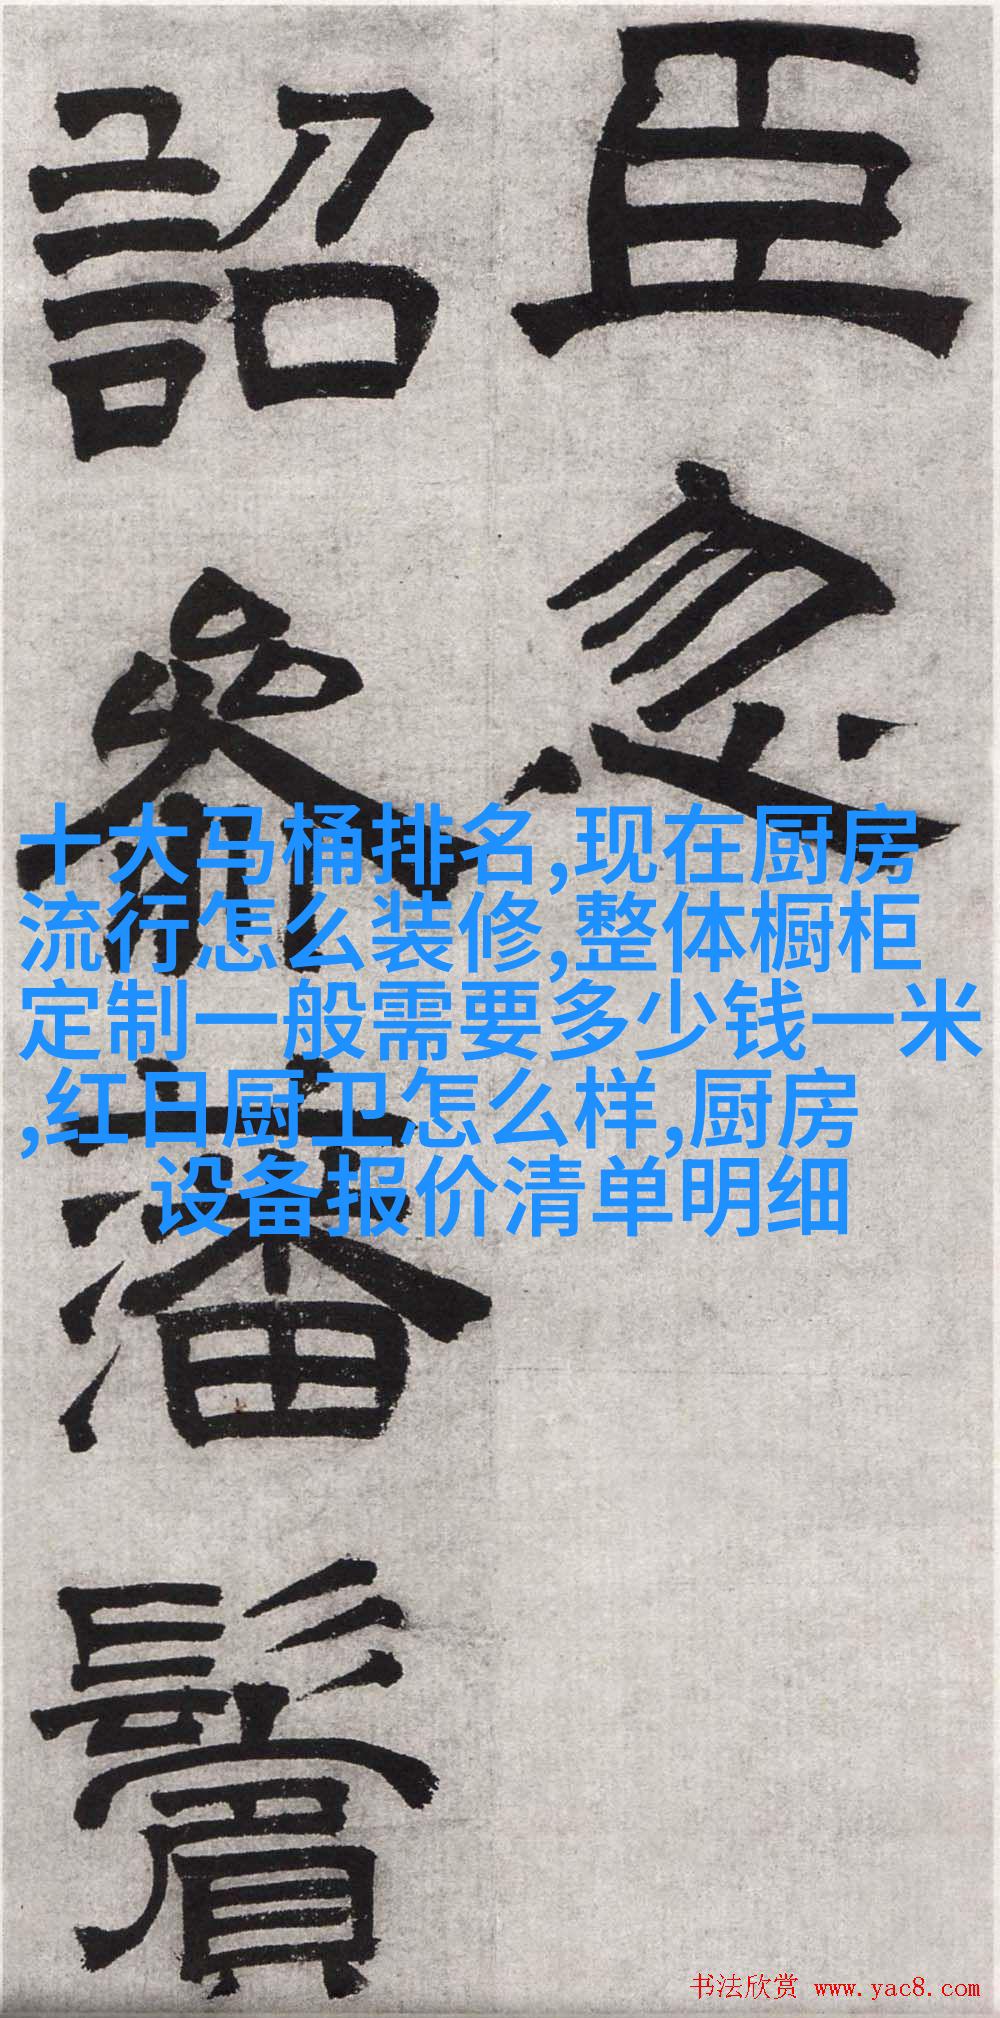 臣忽
詔參
潘鬢
十大马桶排名,现在厨房
流行怎么装修,整体橱柜
定制一般需要多少钱一米
,红日厨卫怎么样,厨房
设备报价清单明细
书法欣赏 www.yac8.com